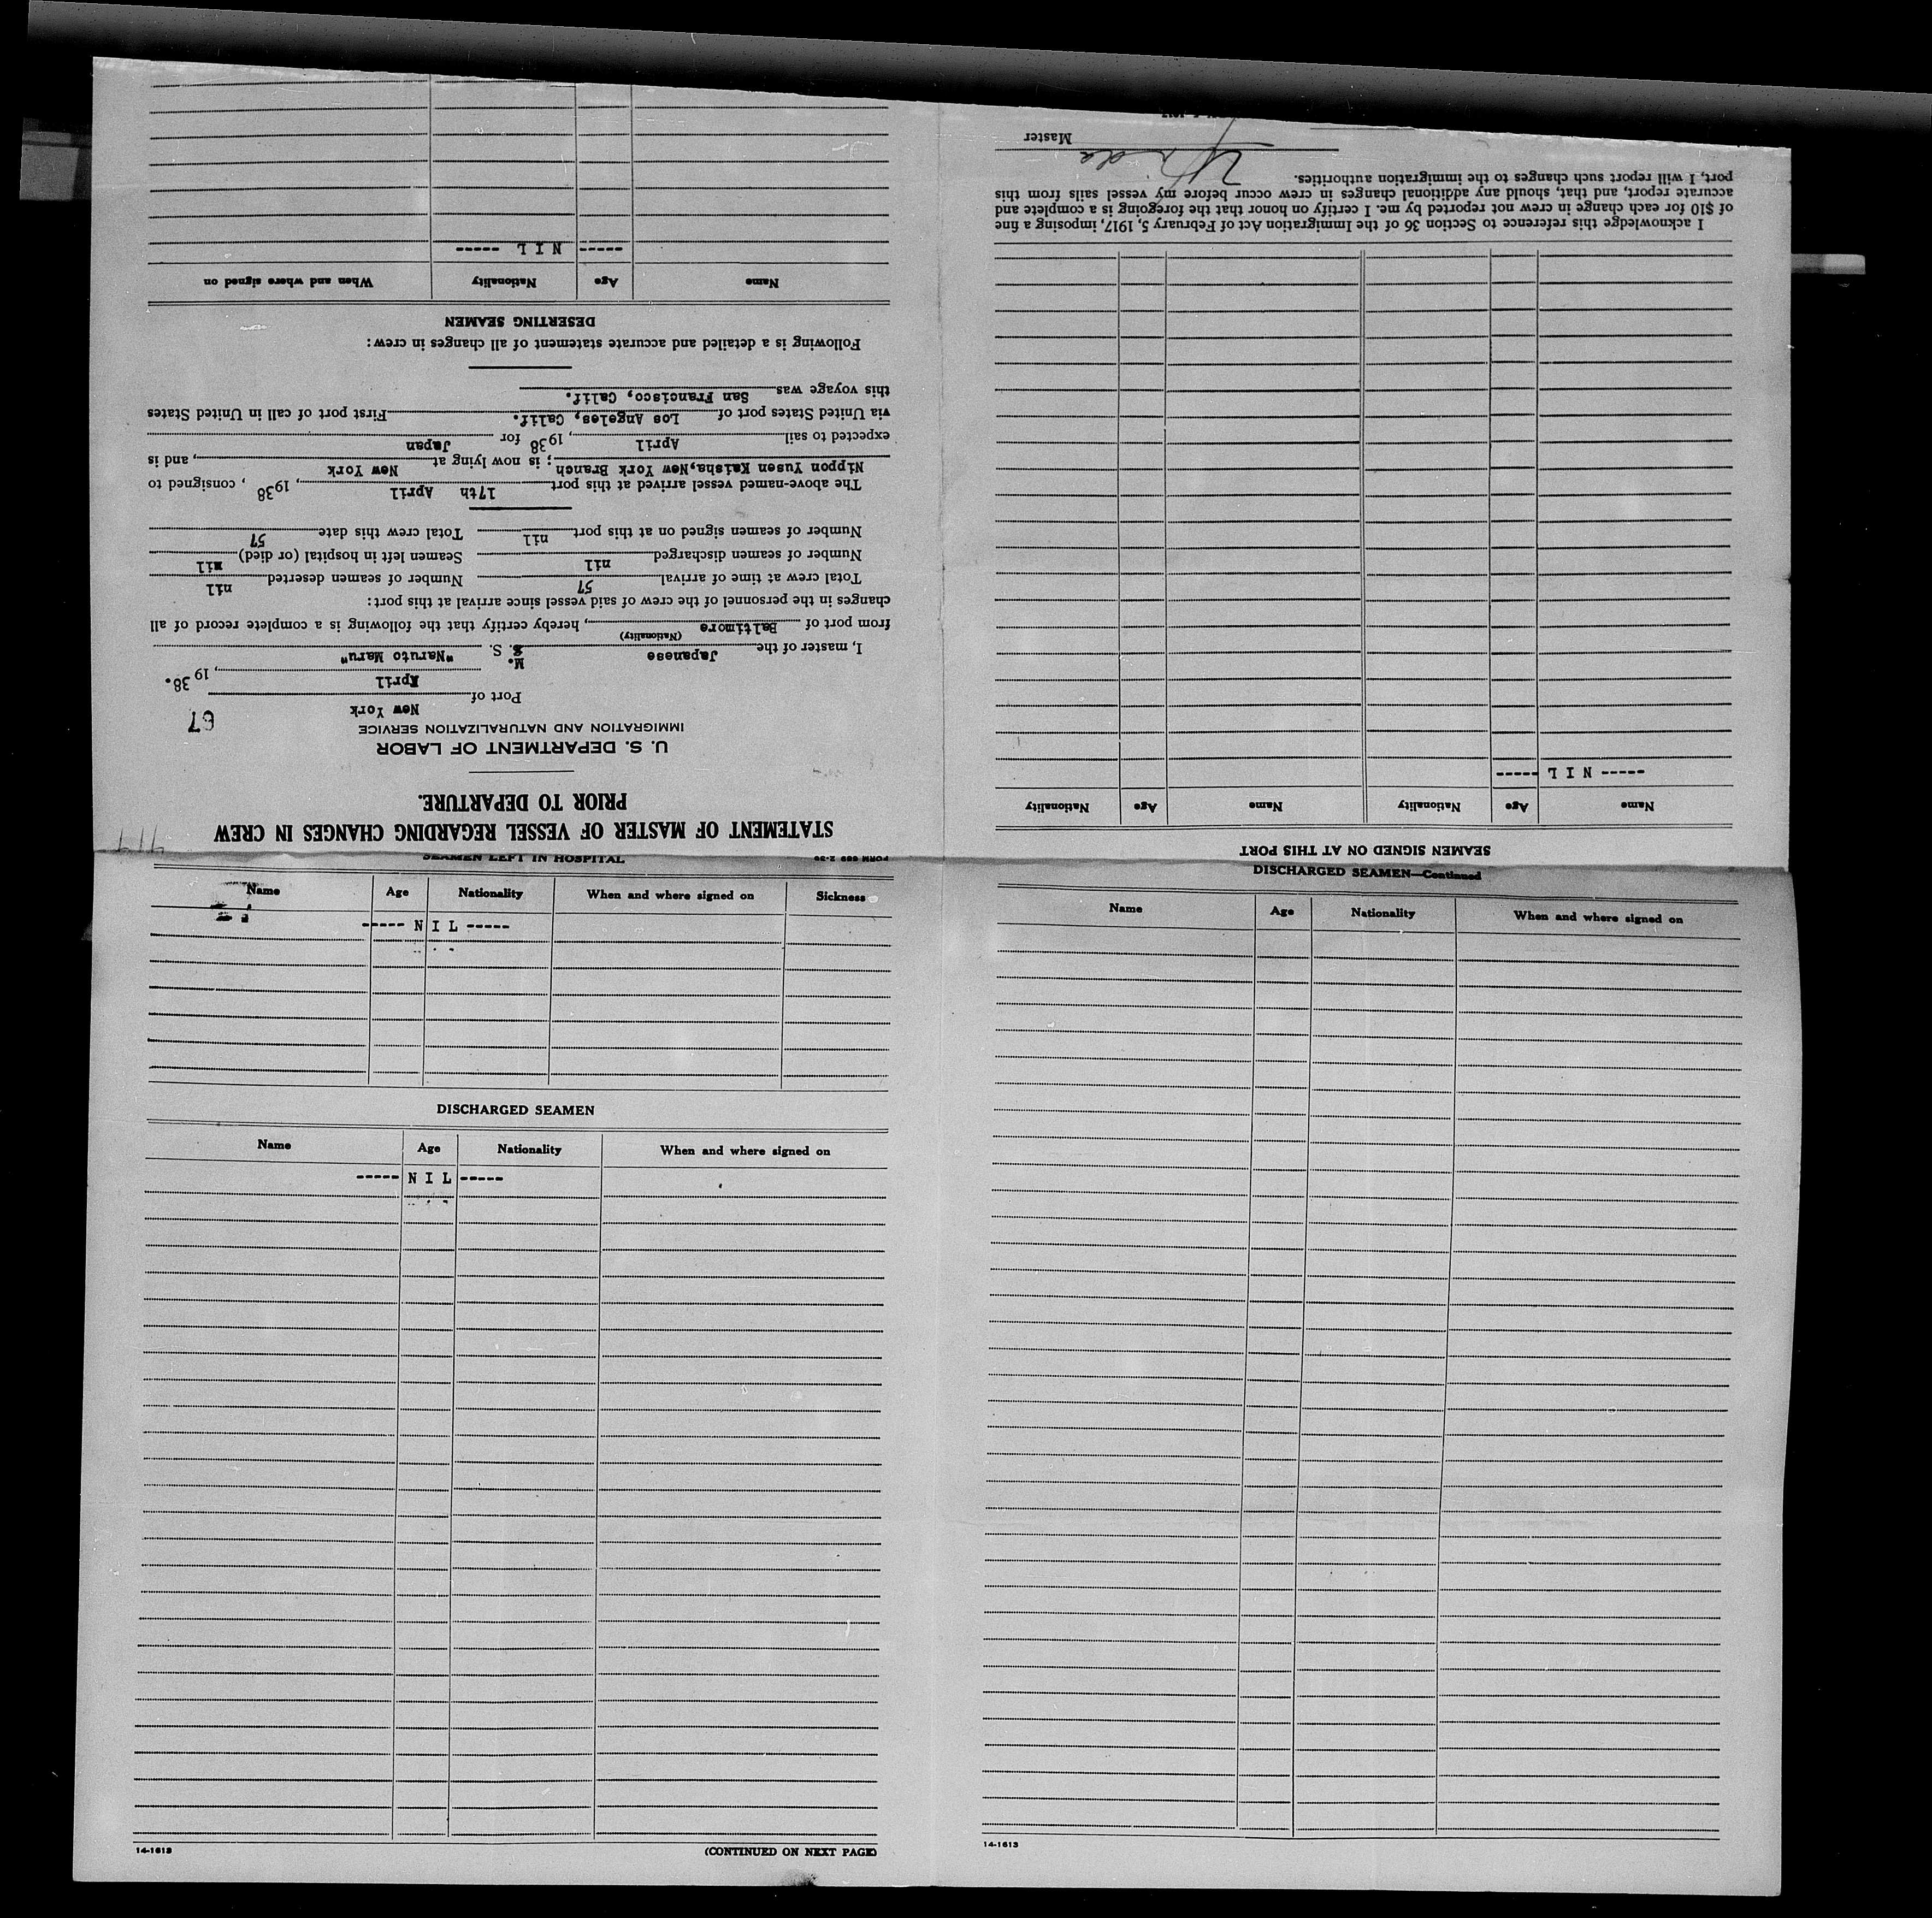 FORM 689 2-35
STATEMENT OF MASTER OF VESSEL REGARDING CHANGES IN CREW
PRIOR TO DEPARTURE.
U. S. DEPARTMENT OF LABOR
IMMIGRATION AND NATURALIZATION SERVICE
67
Port of New York
April, 19 38.
I, master of the Japanese M. S. "Naruto Maru"
(Nationality)
from port of Baltimore, hereby certify that the following is a complete record of all
changes in the personnel of the crew of said vessel since arrival at this port:
Total crew at time of arrival 57 Number of seamen deserted nil
Number of seamen discharged nil Seamen left in hospital (or died) nil
Number of seamen signed on at this port nil Total crew this date 57
The above-named vessel arrived at this port 17th April, 19 38, consigned to
Nippon Yusen Kaisha, New York Branch; is now lying at New York, and is
expected to sail April, 19 38 for Japan
via United States port of Los Angeles, Calif. First port of call in United States
this voyage was San Francisco, Calif.
Following is a detailed and accurate statement of all changes in crew:
DESERTING SEAMEN
Name Age Nationality When and where signed on
----- N I L -----
SEAMEN LEFT IN HOSPITAL
Name Age Nationality When and where signed on Sickness
----- N I L -----
DISCHARGED SEAMEN
Name Age Nationality When and where signed on
----- N I L -----
14-1613 (CONTINUED ON NEXT PAGE)
DISCHARGED SEAMEN—Continued
Name Age Nationality When and where signed on
14-1613
SEAMEN SIGNED ON AT THIS PORT
Name Age Nationality Name Age Nationality
----- N I L -----
I acknowledge this reference to Section 36 of the Immigration Act of February 5, 1917, imposing a fine
of $10 for each change in crew not reported by me. I certify on honor that the foregoing is a complete and
accurate report, and that, should any additional changes in crew occur before my vessel sails from this
port, I will report such changes to the immigration authorities.
Master